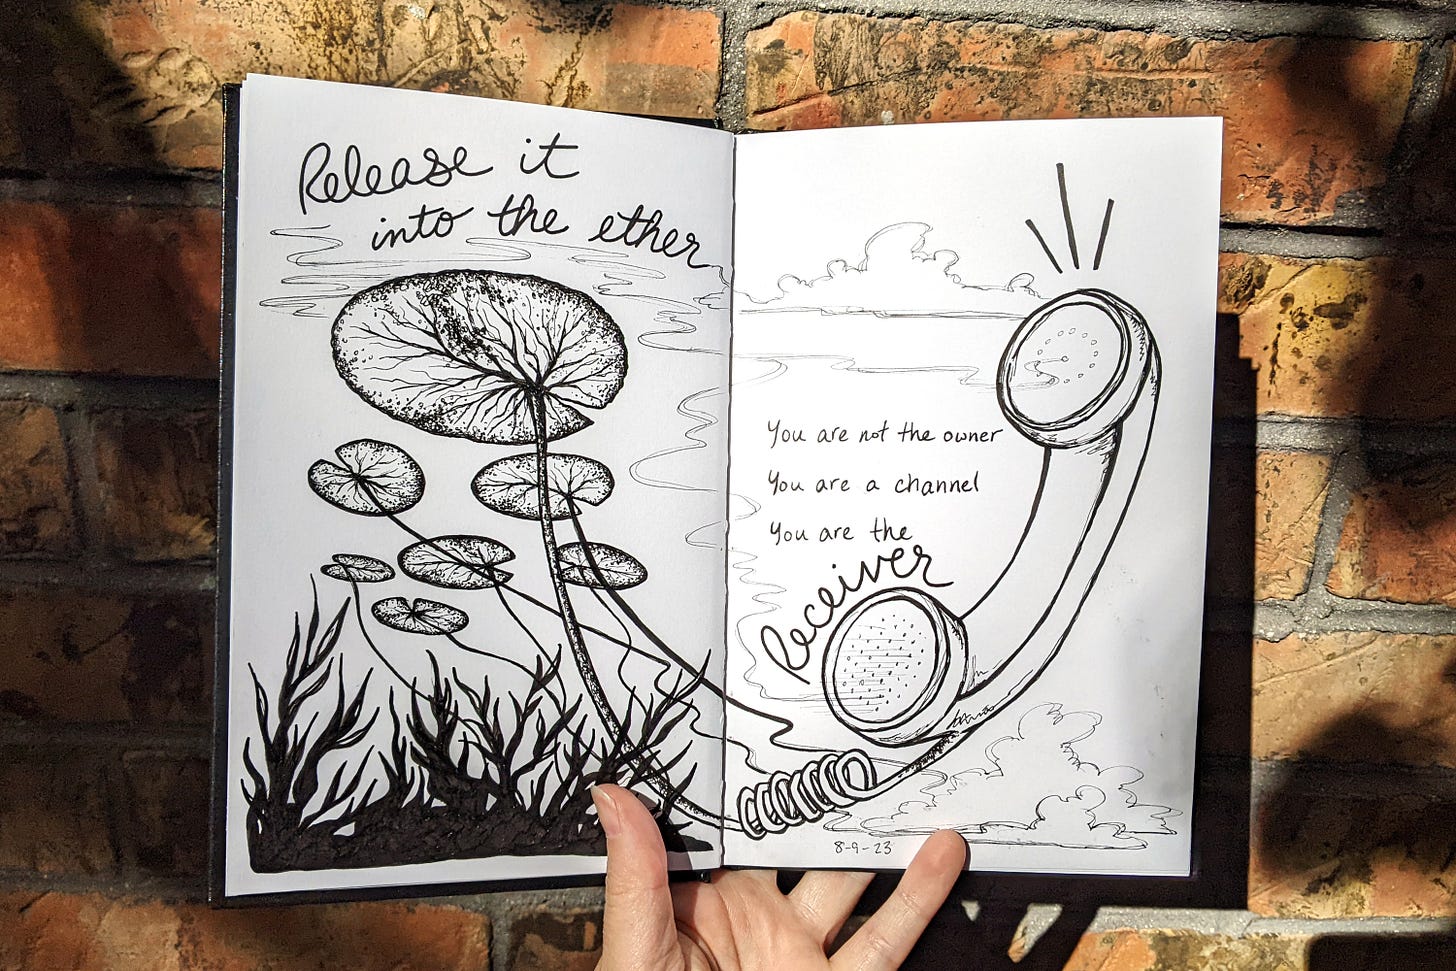 Release it
into the ether
You are not the owner
You are a channel
You are the
Receiver
8-9-23